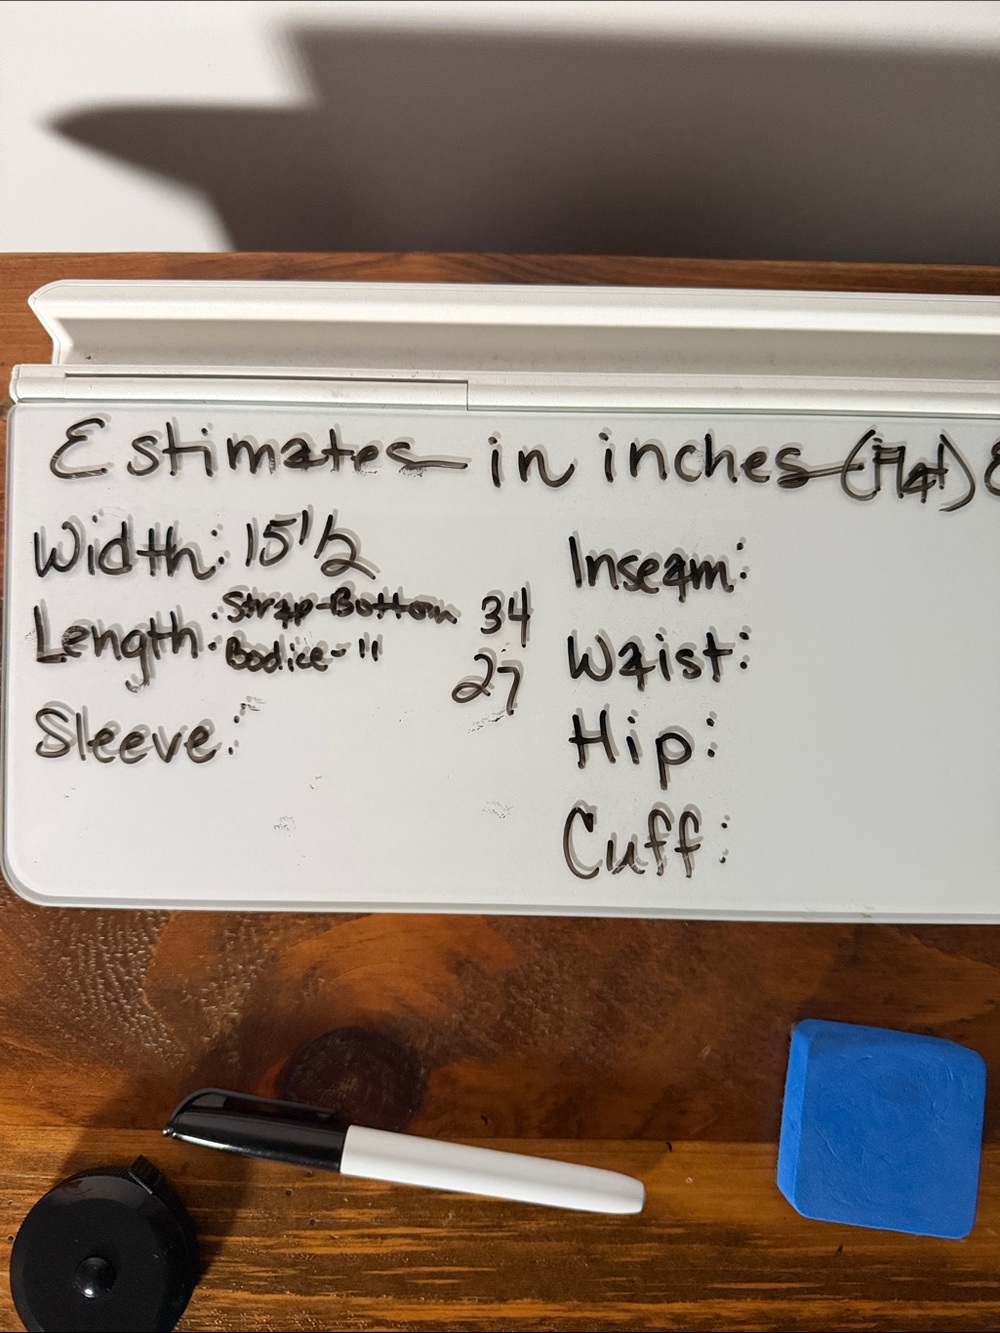 Estimates in inches (Flat)
Width: 15 1/2
Length: Strap-Bottom 34
Bodice- " 27
Sleeve:
Inseam:
Waist:
Hip:
Cuff: